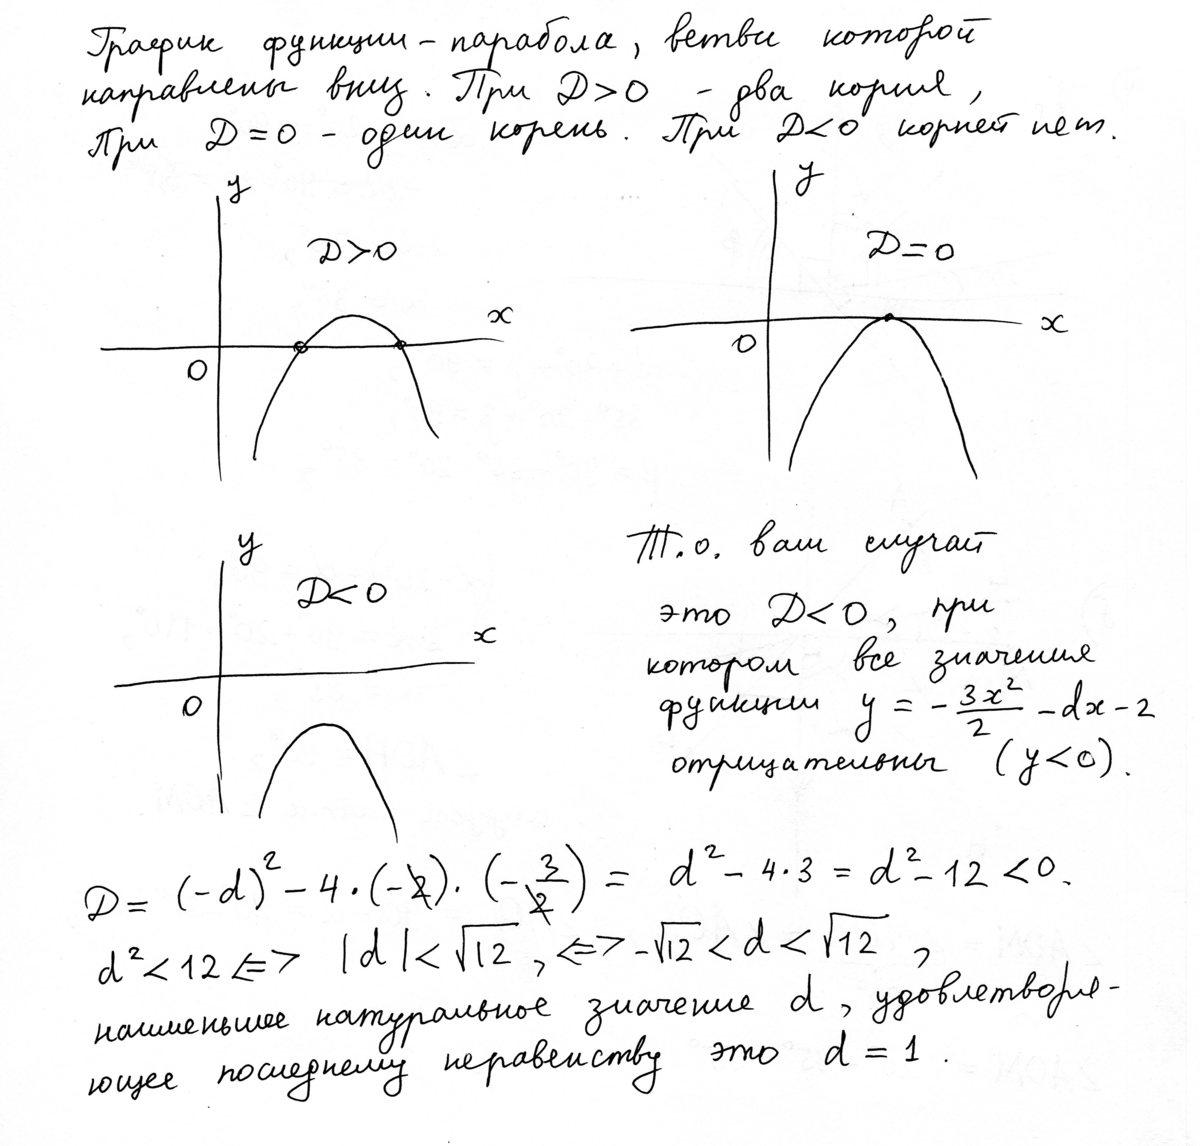 График функции - парабола, ветви которой
направлены вниз. При D>0 - два корня,
При D=0 - один корень. При D<0 корней нет.
y
D>0
x
0
y
D=0
x
0
y
D<0
x
0
Т.о. ваш случай
это D<0, при
котором все значения
функции y = -3x²/2 - dx - 2
отрицательны (y<0).
D = (-d)² - 4·(-2)·(-3/2) = d² - 4·3 = d² - 12 < 0.
d² < 12 <=> |d| < √12, <=> -√12 < d < √12,
наименьшее натуральное значение d, удовлетворя-
ющее последнему неравенству это d = 1.